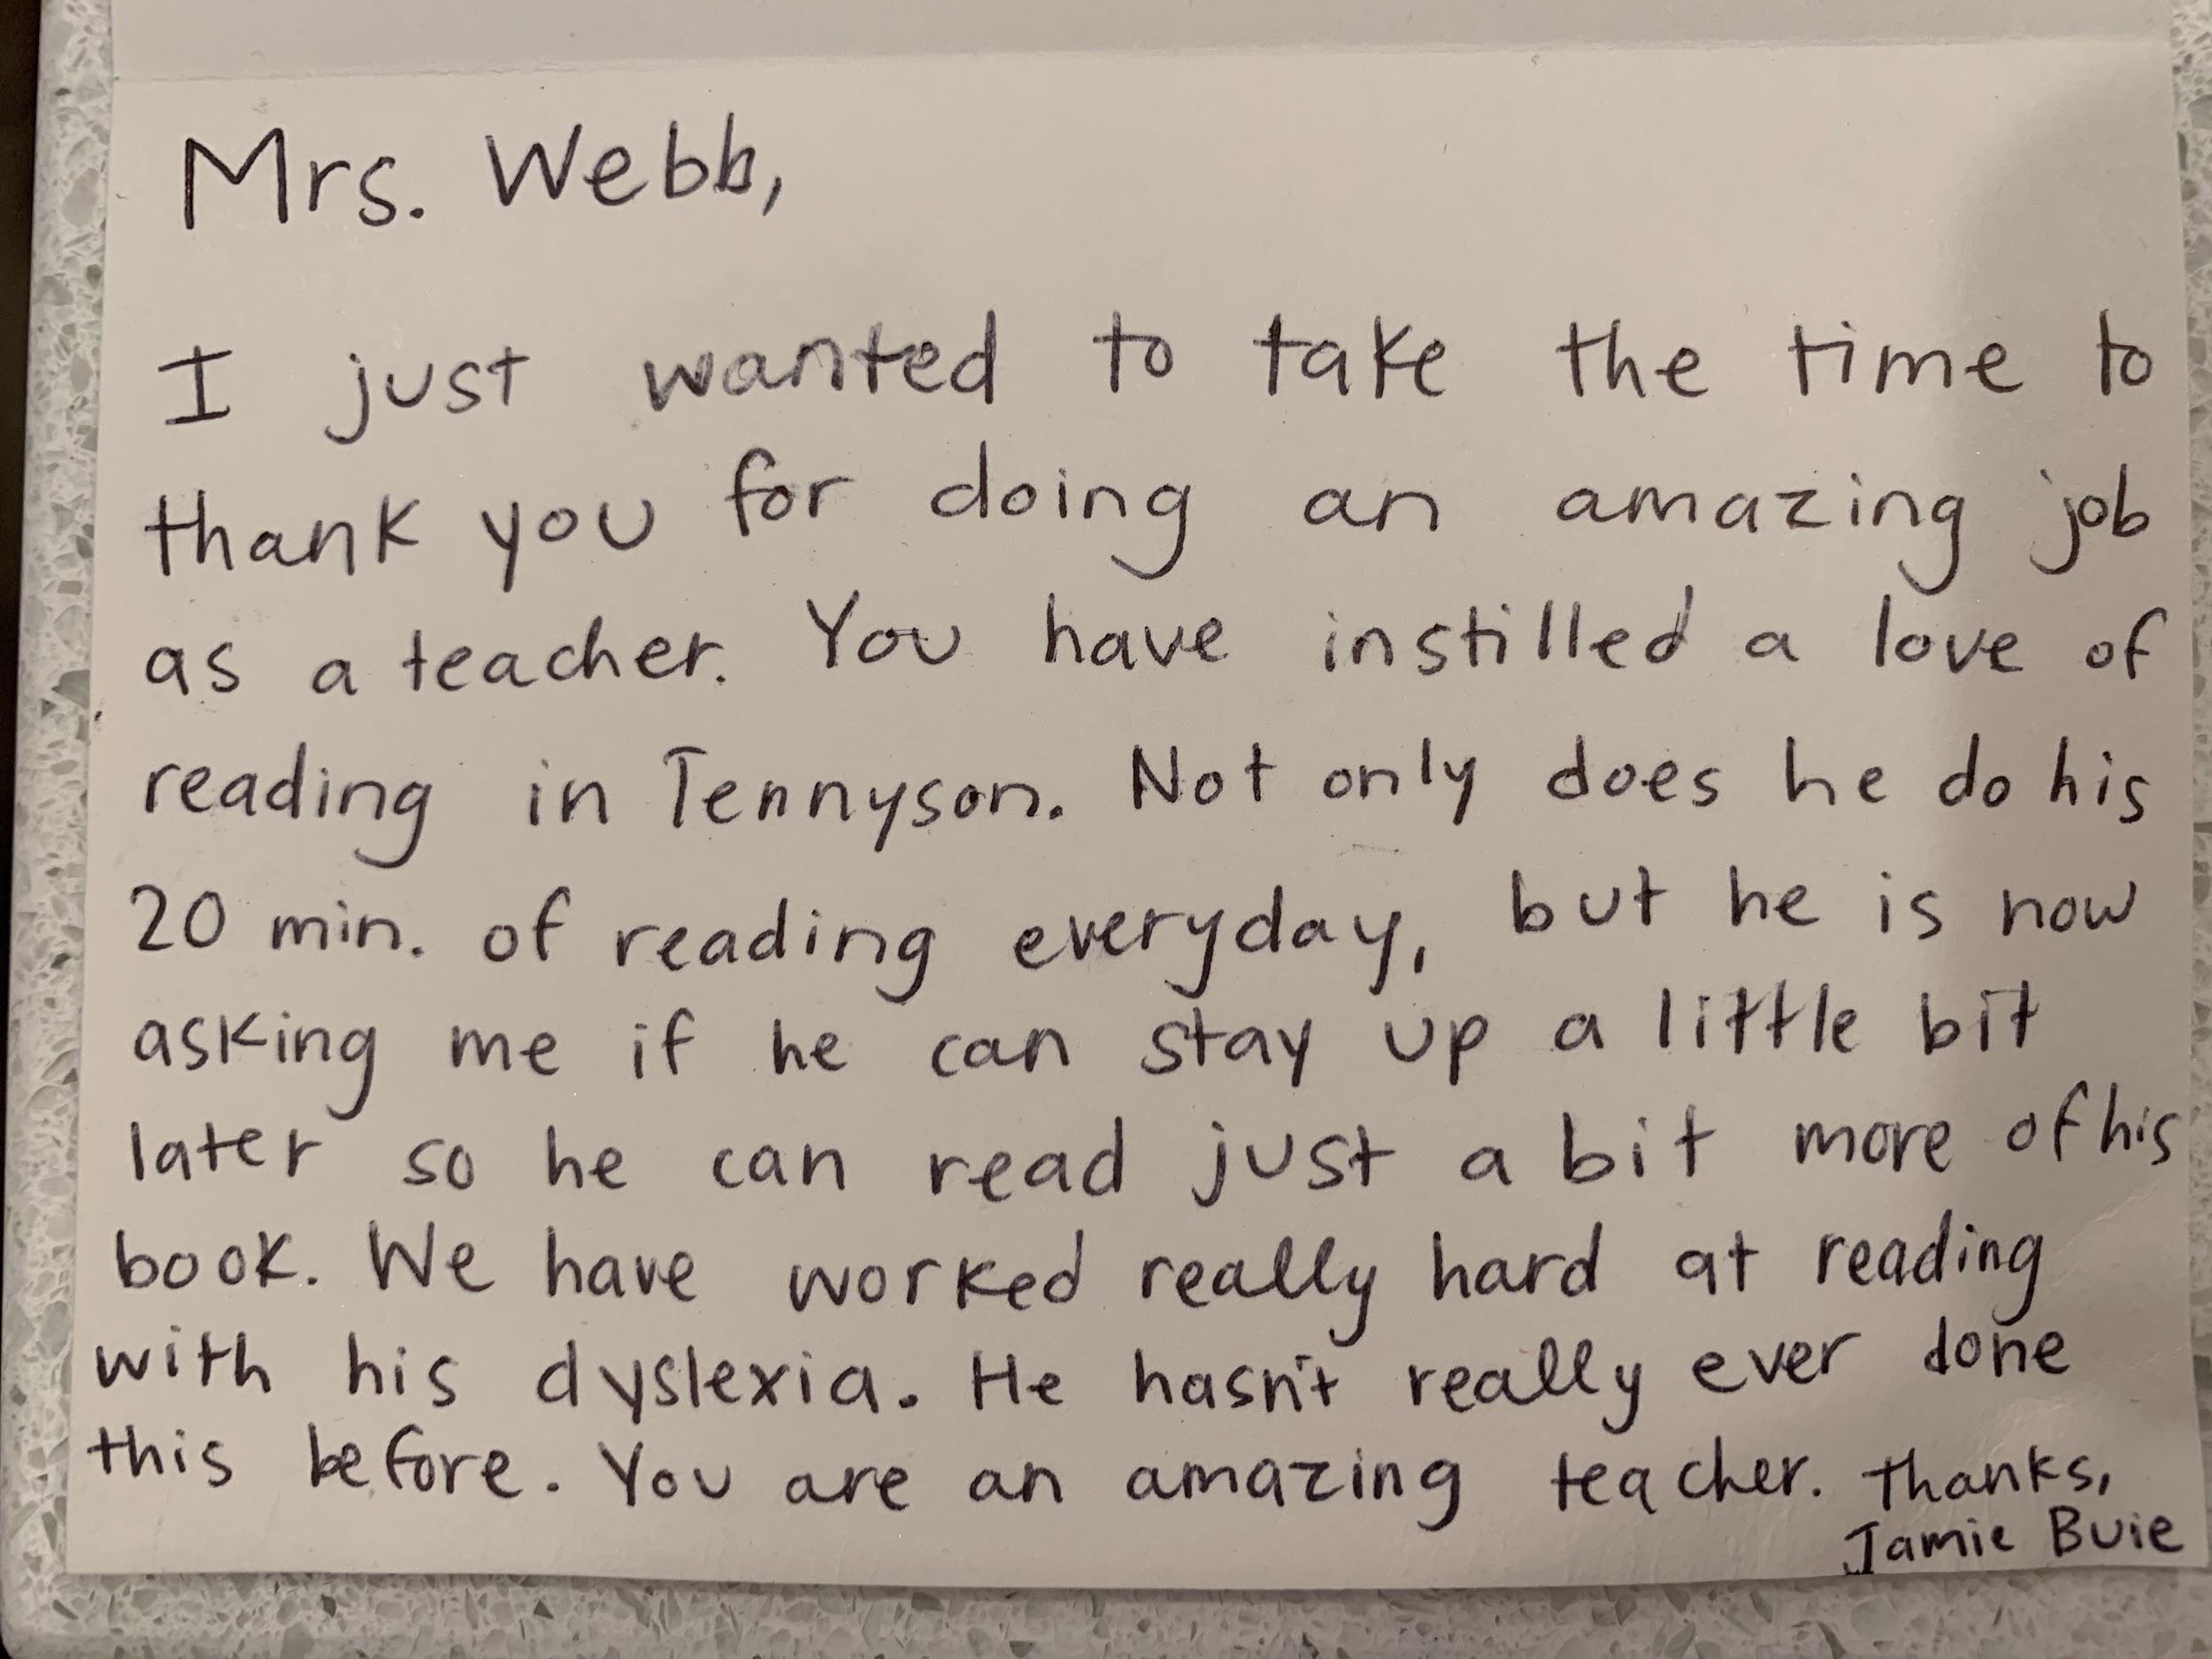 Mrs. Webb,
I just wanted to take the time to
thank you for doing an amazing job
as a teacher. You have instilled a love of
reading in Tennyson. Not only does he do his
20 min. of reading everyday, but he is now
asking me if he can stay up a little bit
later so he can read just a bit more of his
book. We have worked really hard at reading
with his dyslexia. He hasn't really ever done
this before. You are an amazing teacher. Thanks,
Jamie Buie